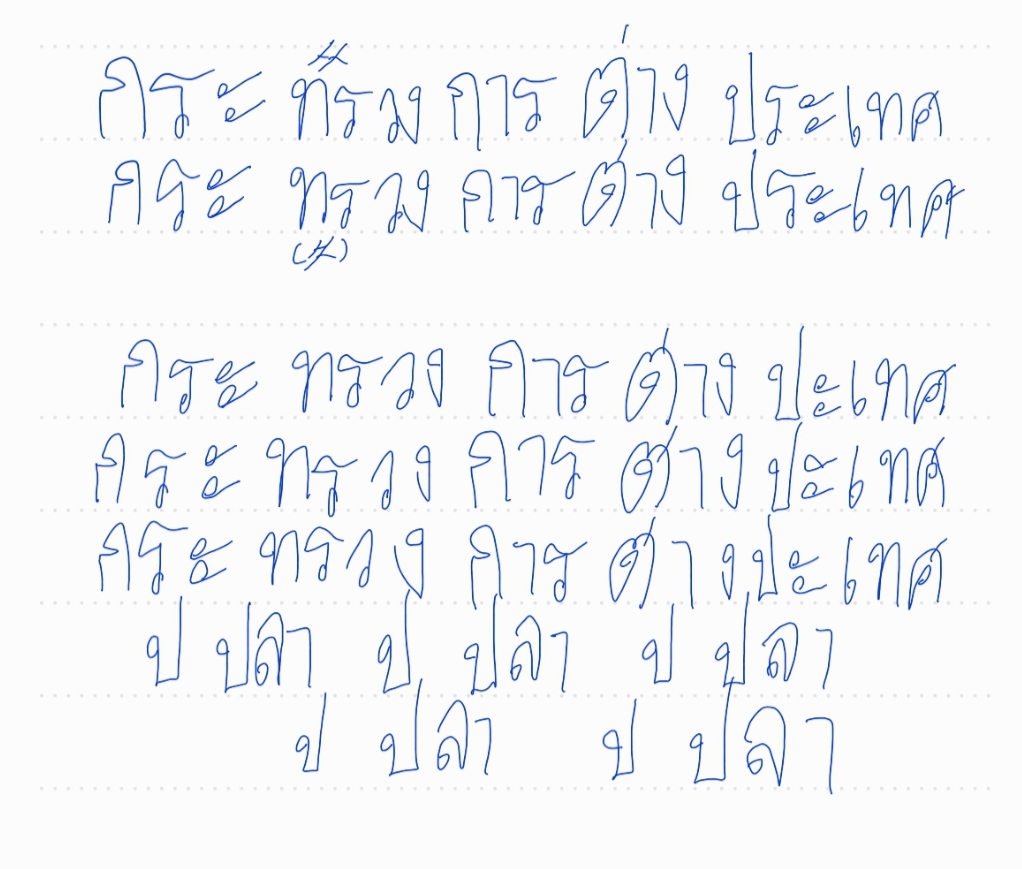 กระ ทรวง การ ต่าง ประเทศ
กระ ทรวง การ ต่าง ประเทศ
กระ ทรวง การ ต่าง ปะเทศ
กระ ทรวง การ ต่าง ปะเทศ
กระ ทรวง การ ต่างปะเทศ
ป ปลา ป ปลา ป ปลา
ป ปลา ป ปลา